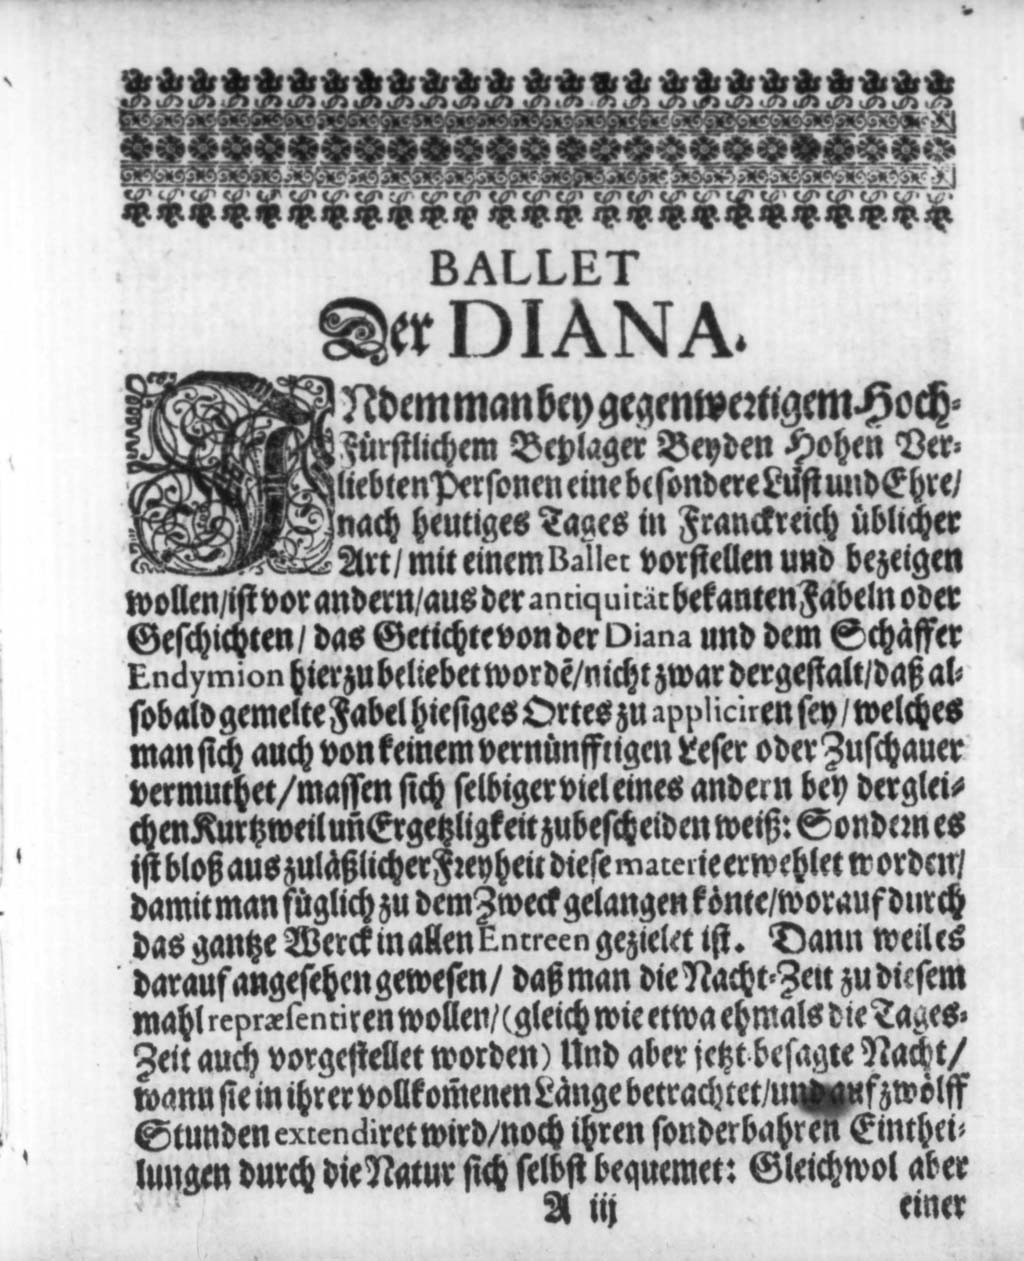 BALLET
Der DIANA.
INdem man bey gegenwertigem Hoch-
Fürstlichem Beylager Beyden Hohen Ver-
liebten Personen eine besondere Lust und Ehre/
nach heutiges Tages in Franckreich üblicher
Art/ mit einem Ballet vorstellen und bezeigen
wollen/ist vor andern/aus der antiquität bekanten Fabeln oder
Geschichten/ das Getichte von der Diana und dem Schäffer
Endymion hierzu beliebet wordē/nicht zwar dergestalt/daß al-
sobald gemelte Fabel hiesiges Ortes zu appliciren sey/welches
man sich auch von keinem vernünfftigen Leser oder Zuschauer
vermuthet/massen sich selbiger viel eines andern bey derglei-
chen Kurtzweil uñ Ergetzligkeit zubescheiden weiß: Sondern es
ist bloß aus zuläßlicher Freyheit diese materie erwehlet worden/
damit man füglich zu dem Zweck gelangen könte/worauf durch
das gantze Werck in allen Entreen gezielet ist. Dann weil es
darauf angesehen gewesen/ daß man die Nacht-Zeit zu diesem
mahl repræsentiren wollen/(gleich wie etwa ehmals die Tages-
Zeit auch vorgestellet worden) Und aber jetzt-besagte Nacht/
wann sie in ihrer vollkom̄enen Länge betrachtet/und auf zwölff
Stunden extendiret wird/noch ihren sonderbahren Einthei-
lungen durch die Natur sich selbst bequemet: Gleichwol aber
A iij einer